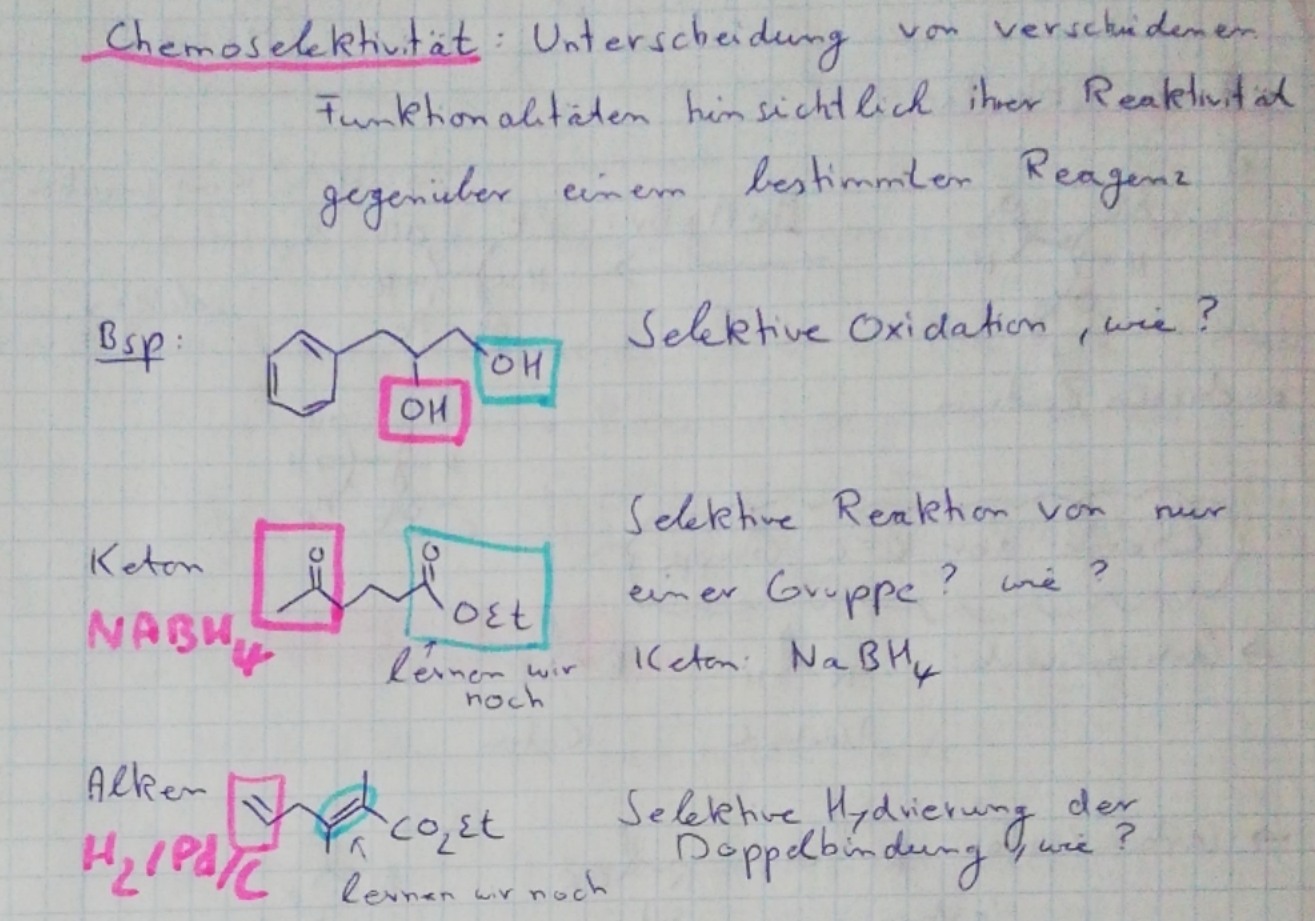 Chemoselektivität: Unterscheidung von verschiedenen
Funktionalitäten hinsichtlich ihrer Reaktivität
gegenüber einem bestimmten Reagenz
Bsp:
OH
OH
Selektive Oxidation, wie?
Keton
NABH4
O
O
OEt
lernen wir
noch
Selektive Reaktion von nur
einer Gruppe? wie?
Keton: NaBH4
Alken
H2/Pd/C
CO2Et
lernen wir noch
Selektive Hydrierung der
Doppelbindung, wie?